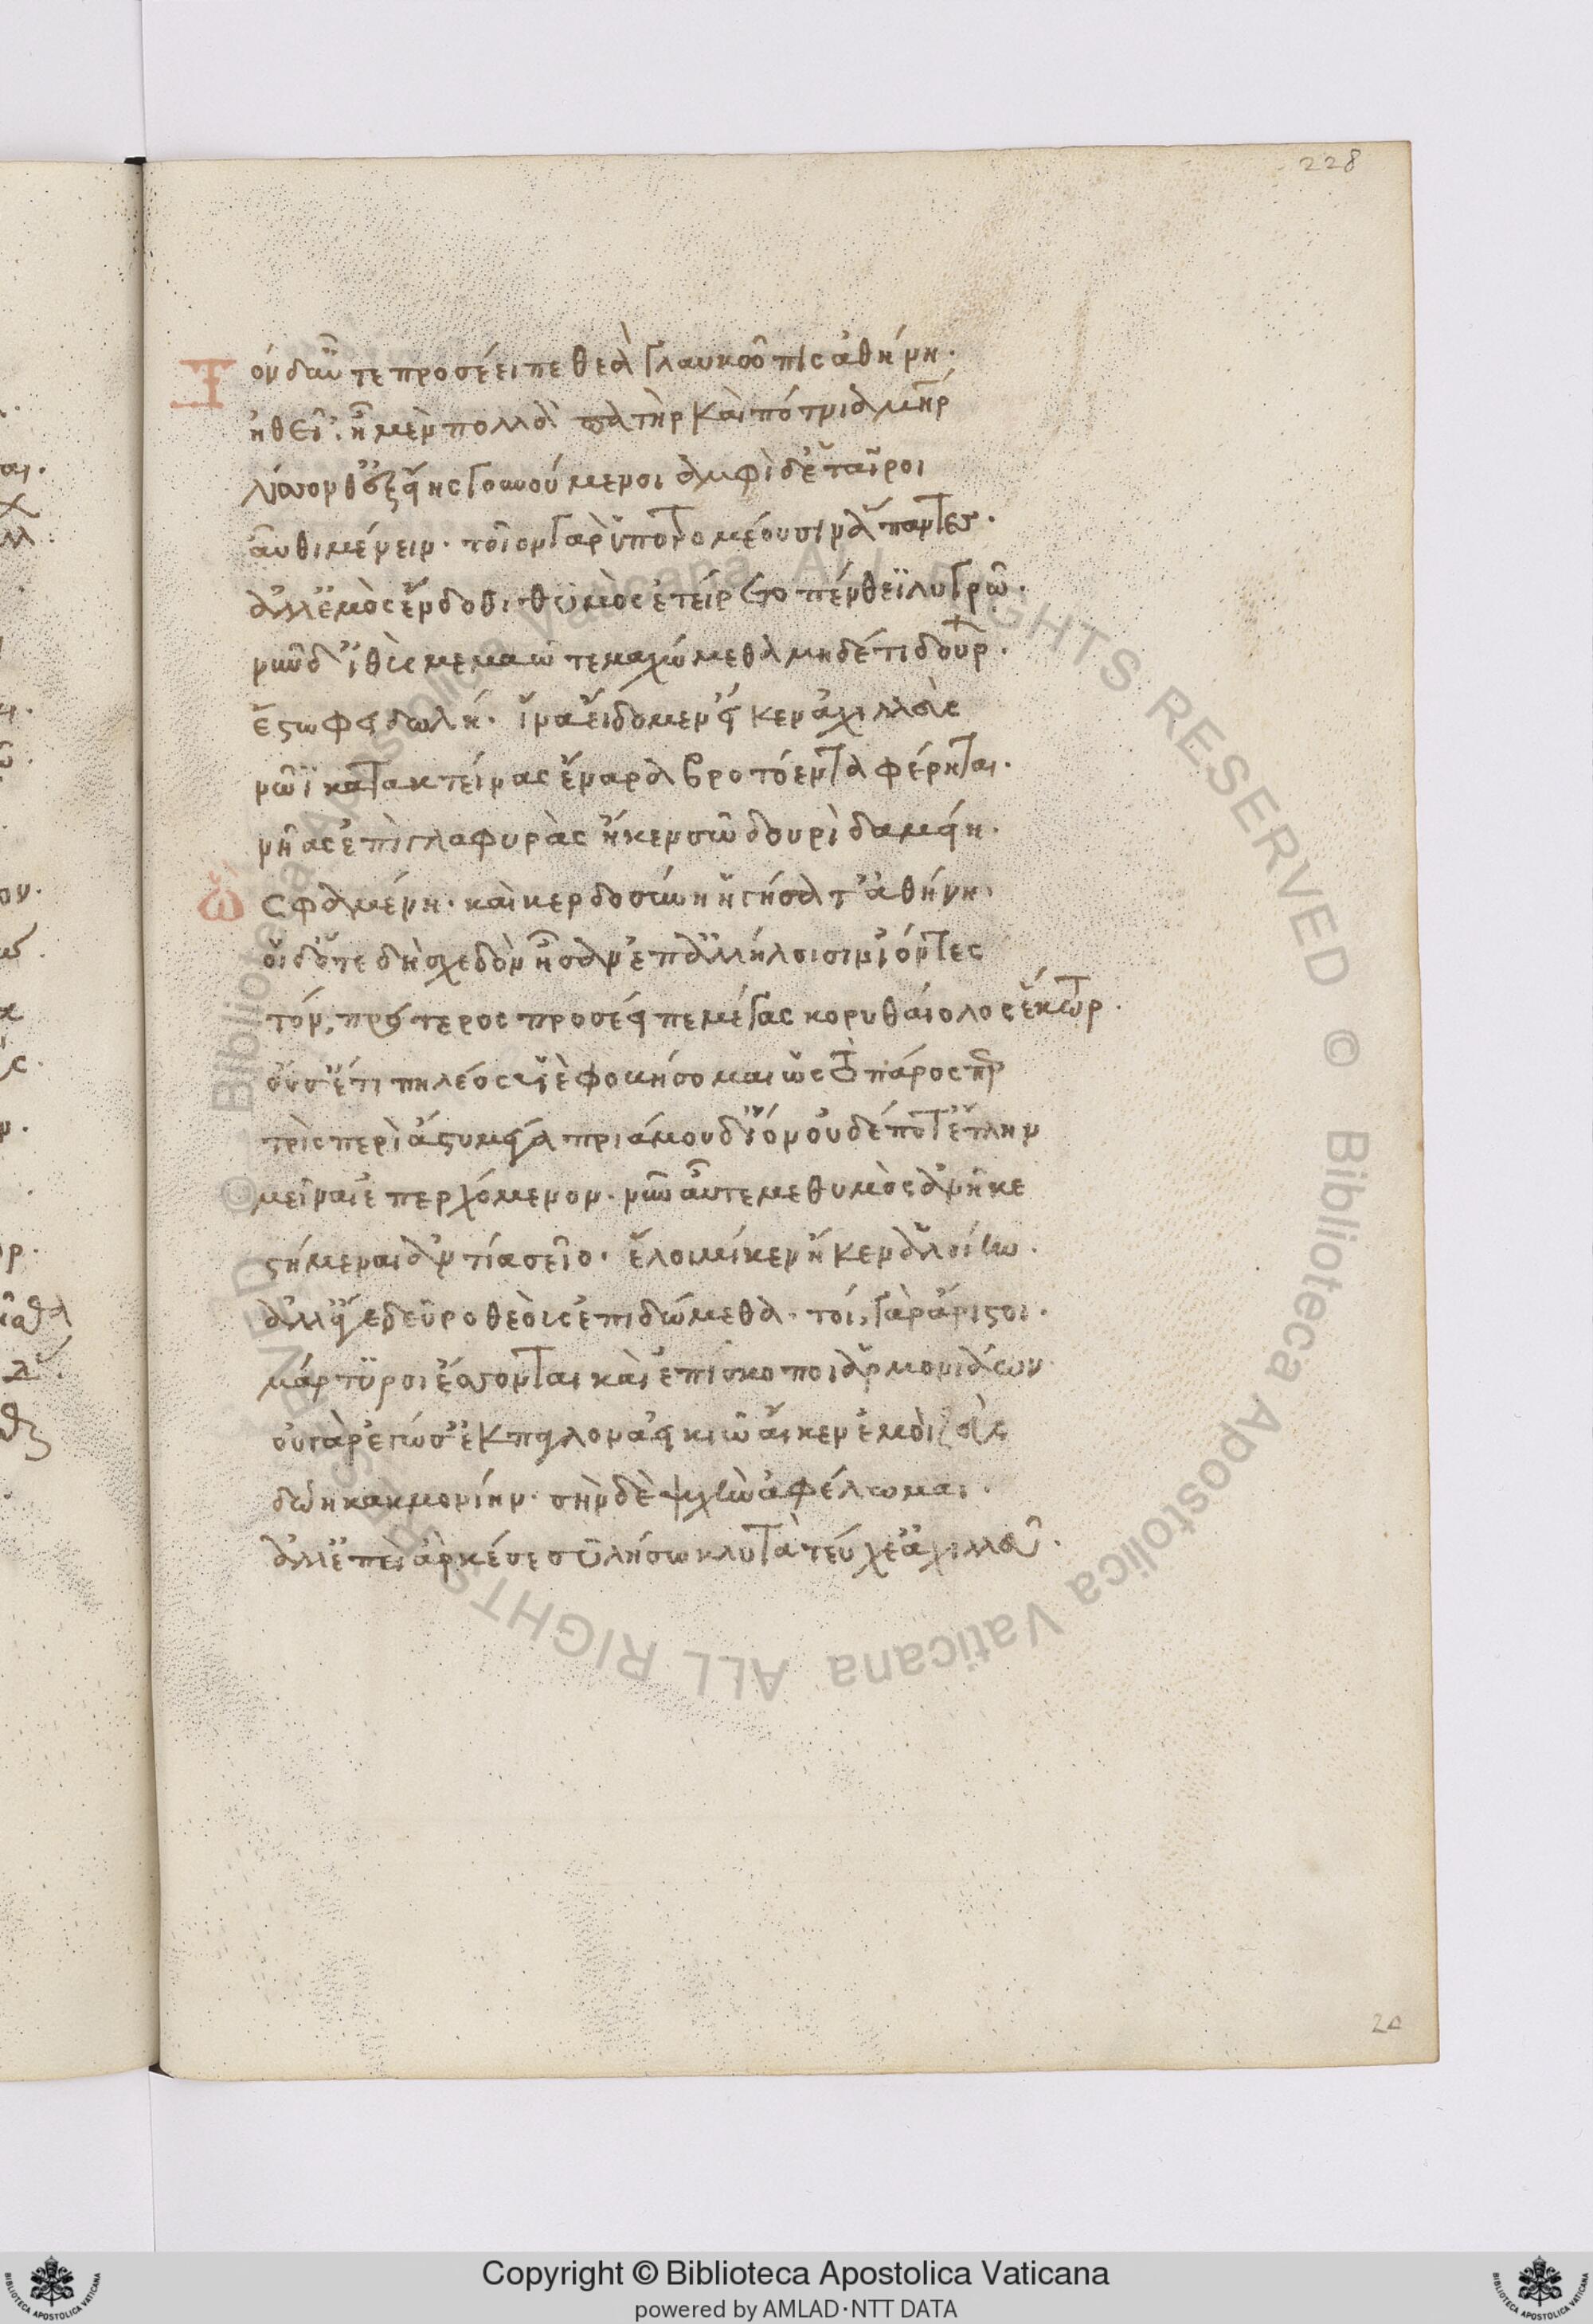 228
Τὸν δ' αὖτε προσέειπε θεὰ γλαυκῶπις ἀθήνη·
ἠθεῖ· ἦ μὲν πολλὰ πατὴρ καὶ πότνια μήτηρ
λίσσονθ' ἑξείης γουνούμενοι ἀμφὶ δ' ἑταῖροι
αὖθι μένειν· τοῖον γὰρ ὑποτρομέουσιν ἅπαντες·
ἀλλ' ἐμὸς ἔνδοθι θυμὸς ἐτείρετο πένθεϊ λυγρῶ·
νῦν δ' ἰθὺς μεμαῶτε μαχώμεθα μηδέ τι δούρων
ἔστω φειδωλή· ἵνα εἴδομεν εἴ κεν ἀχιλλεὺς
νῶϊ κατακτείνας ἔναρα βροτόεντα φέρηται·
νῆας ἐπὶ γλαφυρὰς ἤ κεν σῶ δουρὶ δαμείη·
ὣς φαμένη· καὶ κερδοσύνη ἡγήσατ' ἀθήνη·
οἱ δ' ὅτε δὴ σχεδὸν ἦσαν ἐπ' ἀλλήλοισιν ἰόντες
τὸν πρότερος προσέειπε μέγας κορυθαίολος ἕκτωρ·
οὔ σ' ἔτι πηλέος υἱὲ φοβήσομαι ὡς τὸ πάρος περ
τρὶς περὶ ἄστυ μέγα πριάμου δῖον οὐδέ ποτ' ἔτλην
μεῖναι ἐπερχόμενον· νῦν αὖτέ με θυμὸς ἀνῆκε
στήμεναι ἀντία σεῖο· ἕλοιμί κεν ἤ κεν ἁλοίην·
ἀλλ' ἄγε δεῦρο θεοὺς ἐπιδώμεθα· τοὶ γὰρ ἄριστοι·
μάρτυροι ἔσσονται καὶ ἐπίσκοποι ἁρμονιάων
οὐ γὰρ ἐγώ σ' ἔκπαγλον ἀεικιῶ αἴ κεν ἐμοὶ ζεὺς
δώη καμμονίην· σὴν δὲ ψυχὴν ἀφέλωμαι·
ἀλλ' ἐπεὶ ἄρ κέ σε συλήσω κλυτὰ τεύχε' ἀχιλλεῦ·
20
© Biblioteca Apostolica Vaticana ALL RIGHTS RESERVED © Biblioteca Apostolica Vaticana ALL RIGHTS RESERVED
Copyright © Biblioteca Apostolica Vaticana
powered by AMLAD·NTT DATA